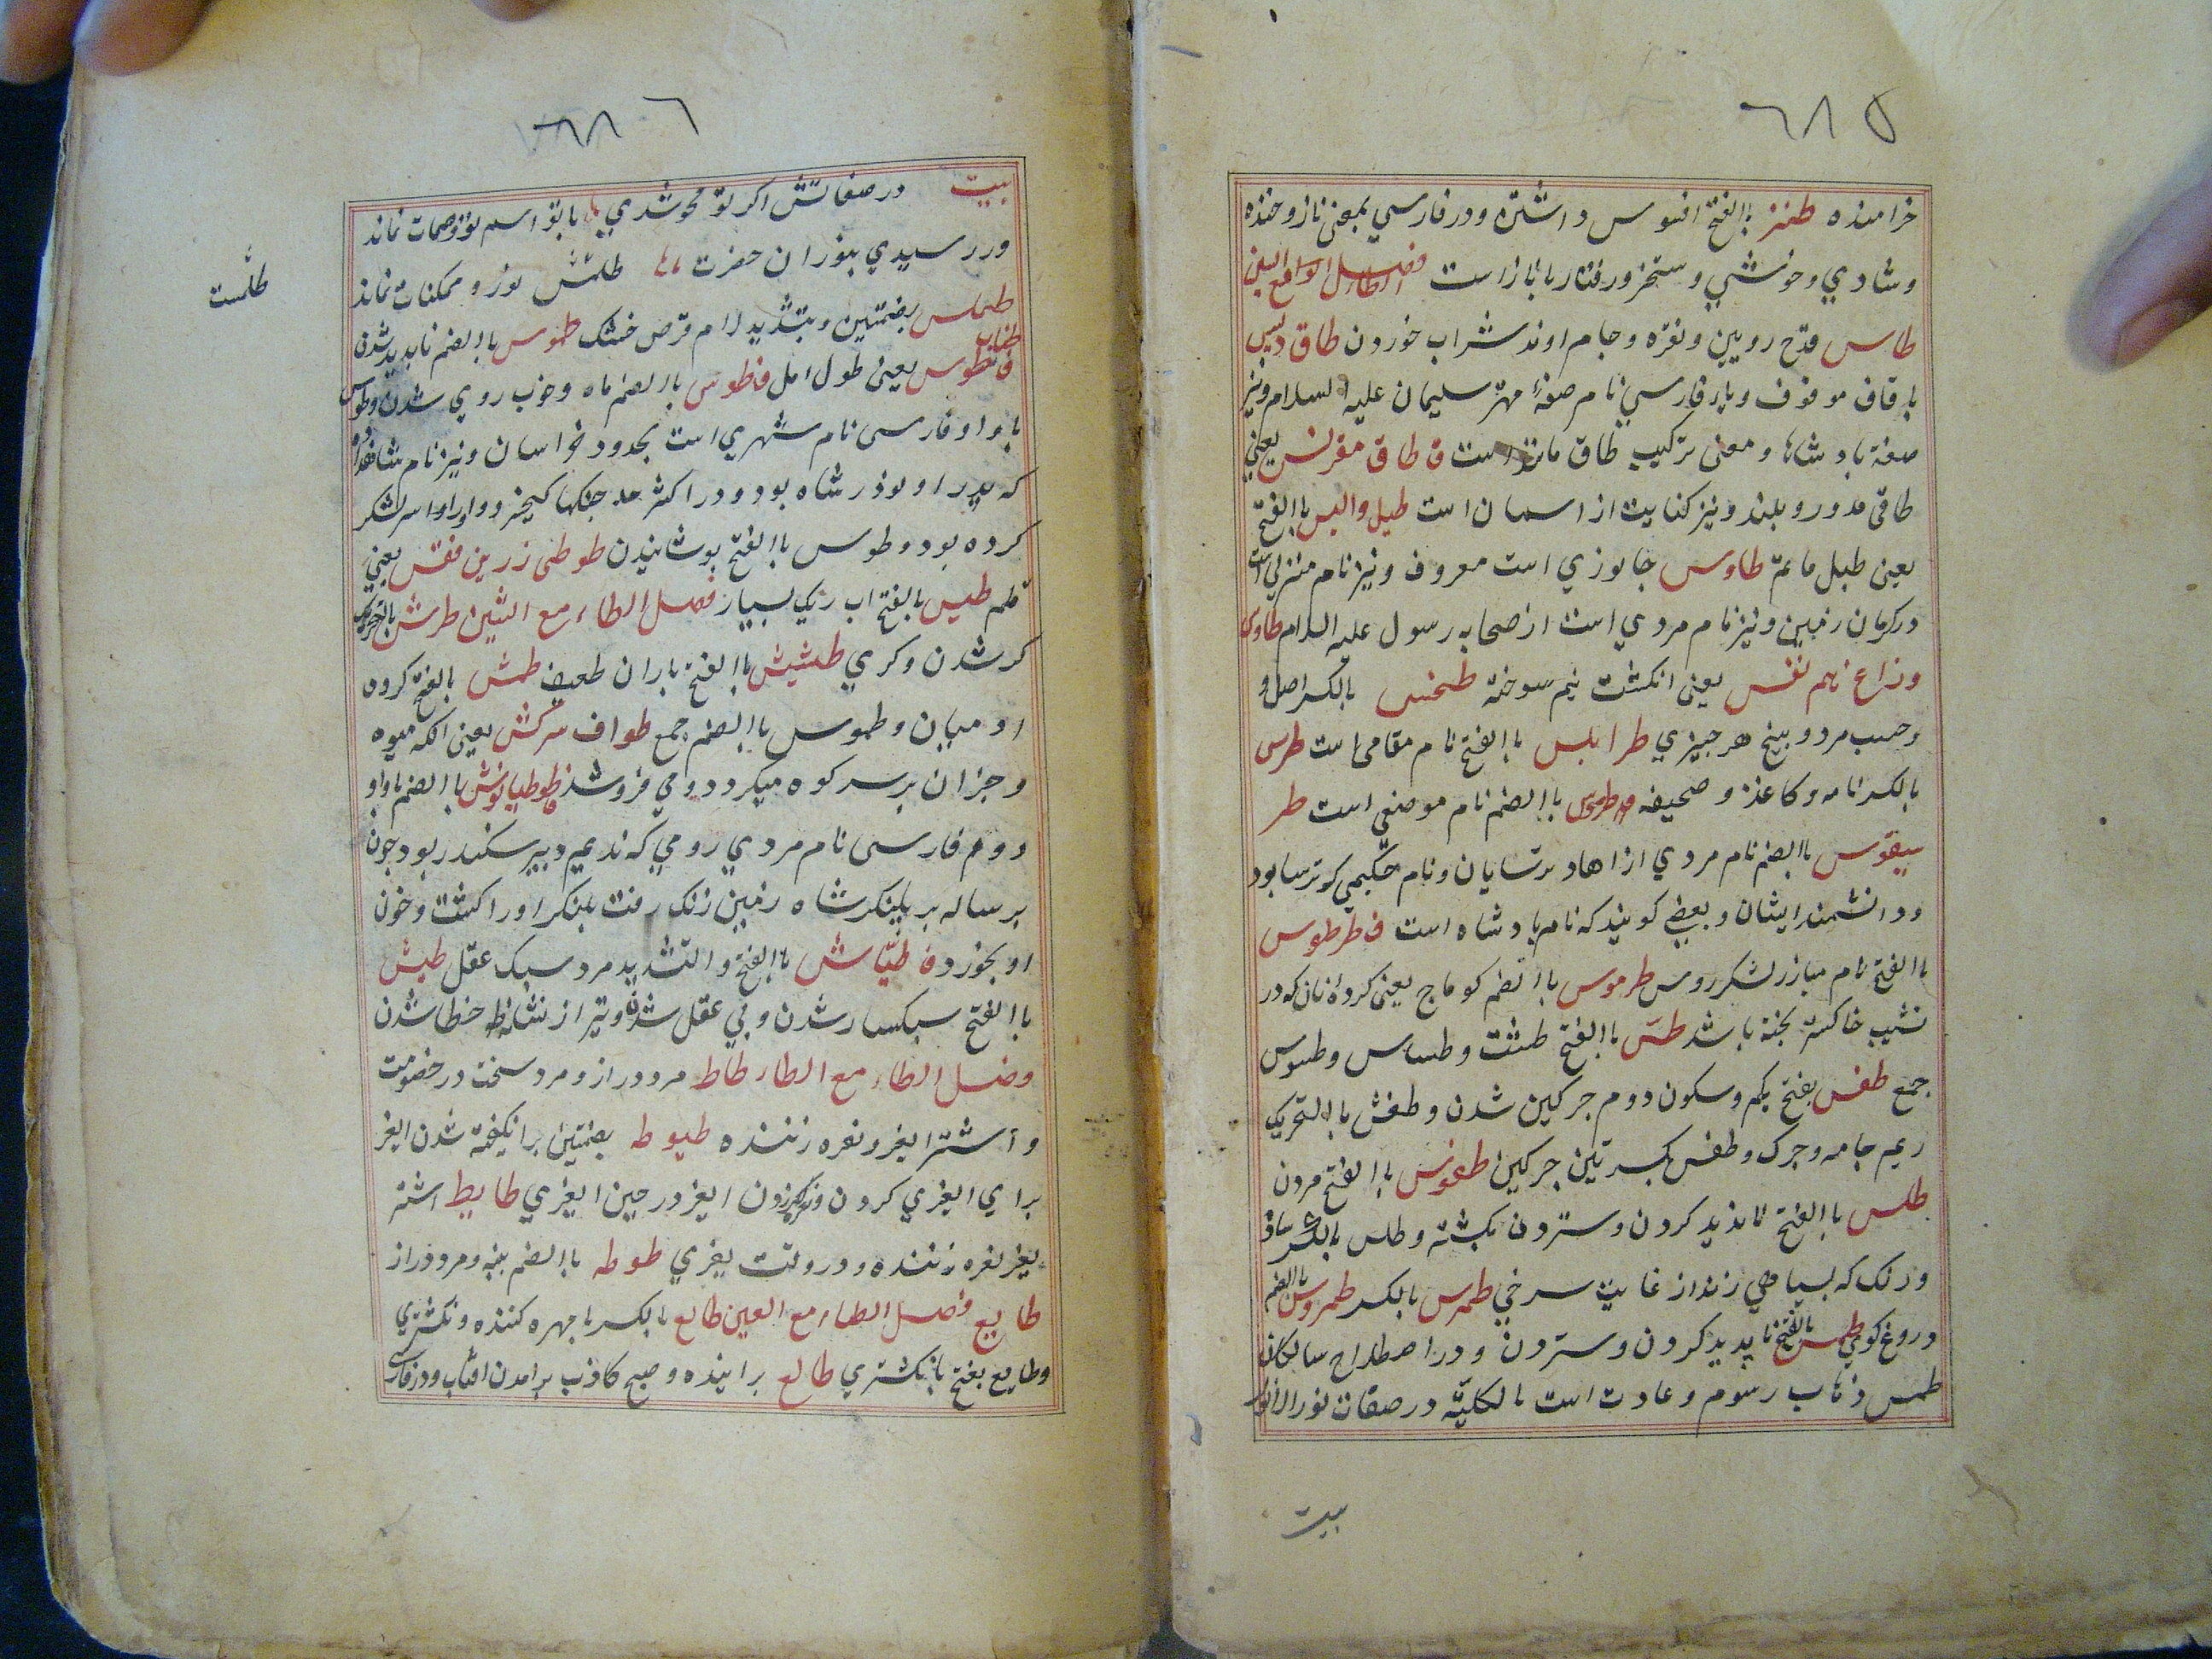 ٦٨٥
خرامنده طنز باالفتح افسوس داشتن ودر فارسي بمعنى ناز وخنده
وشادي وخوشي وسخر ورفتار باناز است فصل الطاء مع السين
طاس قدح رويين ونقره وجام اوند شراب خوردن طاق
با قاف موقوف وياء فارسي نام صفهٔ مهتر سليمان عليه السلام ونيز
صفهٔ بادشاه ومعنى تركيب طاق مانند است ف طاق مقرنس يعني
طاقى مدور وبلند ونيز كنايت از اسمان است طبل والبس باالفتح
يعنى طبل ماتم طاوس جانوري است معروف ونيز نام منزلى است
در كرمان زمين ونيز نام مردي است از صحابه رسول عليه السلام طاوس
وزاغ نيم نفس يعنى انكشت نيم سوخته طخس بالكسر اصل و
وحسب مرد وبيخ هر چيزي طرابلس باالفتح نام مقامى است طرس
بالكسر نامه وكاغذ وصحيفه طرسوس باالضم نام موضعى است طر
سيقوس باالضم نام مردي از زهاد ترسايان ونام حكيمي كه ترسا بود
ودانشمند ايشان وبعضي كويند كه نام بادشاه است ف طرطوس
باالفتح نام مبارز لشكر روس طرموس باالضم كوماج يعنى كرده نان كه در
نشيب خاكستر بخته باشد طس باالفتح طشت وطساس وطسوس
جمع طفس بفتح يكم وسكون دوم چركين شدن وطفش باالتحريك
ريم جامه وچرك وطفس بكسرتين چركين طفوس باالفتح مردن
طلس باالفتح ناپديد كردن وستردن نبشته وطلس بالكسر ساده
ورنك كه بسياهي زند از غايت سرخي طمرس بالكسر طمروس باالضم
دروغ كوي طمس بالفتح ناپديد كردن وستردن ودر اصطلاح سالكان
طمس ذهاب رسوم وعادت است بالكليّه در صفات نور الانوار
بيت
٦٨٦
بيت در صفاتش اكر تو محو شدي با تو اسم نور وصفات نماند
ور رسيدي بنور ان حضرت طلمس نور وممكنات نماند
طلمست
طملس بضمتين وبتشديد لام قرص خشك طموس باالضم ناپديد شدن
طناب ف نطوس يعنى طول امل ف طوس باالضم ماه وخوب روي شدن وطوس
با واو فارسى نام شهري است بحدود خراسان ونيز نام شاهزاده
كه پدر او نوذر شاه بود ودر اكثر جنكها كيخسرو اورا سر لشكر
كرده بود وطوس باالفتح پوشانيدن طوطى زرين قفس يعني
قلم طيس بالفتح اب ريك بسيار فصل الطاء مع الشين طرش بالتحريك
كر شدن وكري طشيش باالفتح باران ضعيف طمش بالفتح كروه
ادميان وطموس باالضم جمع طواف سركش يعنى انكه ميوه
وجز ان بر سر كوه ميكردد ومي فروشد ف طوطيانوش باالضم با واو
دوم فارسى نام مردي رومي كه نديم دبير سكندر بود چون
برساله بر پلنكر شاه زمين زنك رفت پلنكر اورا كشت وخون
او بخورد ف طيّاش باالفتح والتشديد مرد سبك عقل طيش
باالفتح سبكسار شدن وبي عقل شدن وتير از نشانه خطا شدن
فصل الطاء مع الطاء طاط مرد دراز ومرد سخت در خصومت
واشتر الغر ونعره زننده طيوط بضمتين برانكيخته شدن الغر
براي الغري كردن ونعره زدن الغر در حين الغري طايط اشتر
يغر نعره زننده ودر وقت يغري طوط باالضم پنبه ومرد دراز
طابع فصل الطاء مع العين طابع بالكسر با مهره كننده وانكشتري
وطابع بفتح با انكشتري طالع براينده وصبح كاذب برامدن افتاب ودر فارسى